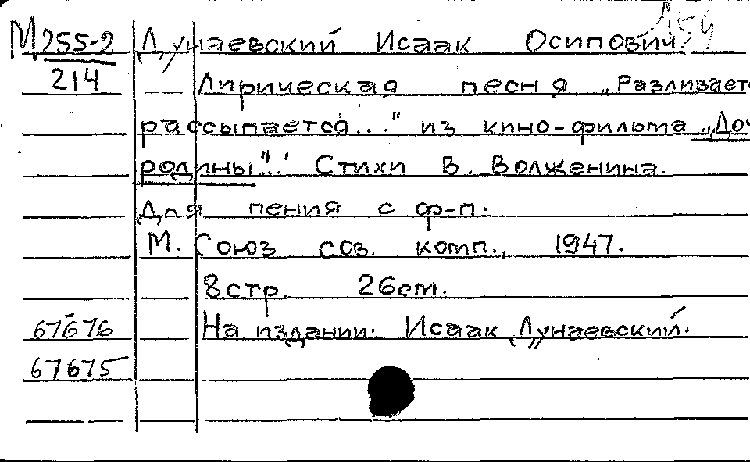 М255-2 Дунаевский Исаак Осипович
214 Лирическая песня „Разливает
рассыпается..." из кино-фильма „Доч
родины". Стихи В. Волженина.
Для пения с ф-п.
М. Союз сов. комп., 1947.
8стр. 26cm.
67676 На издании: Исаак Дунаевский.
67675